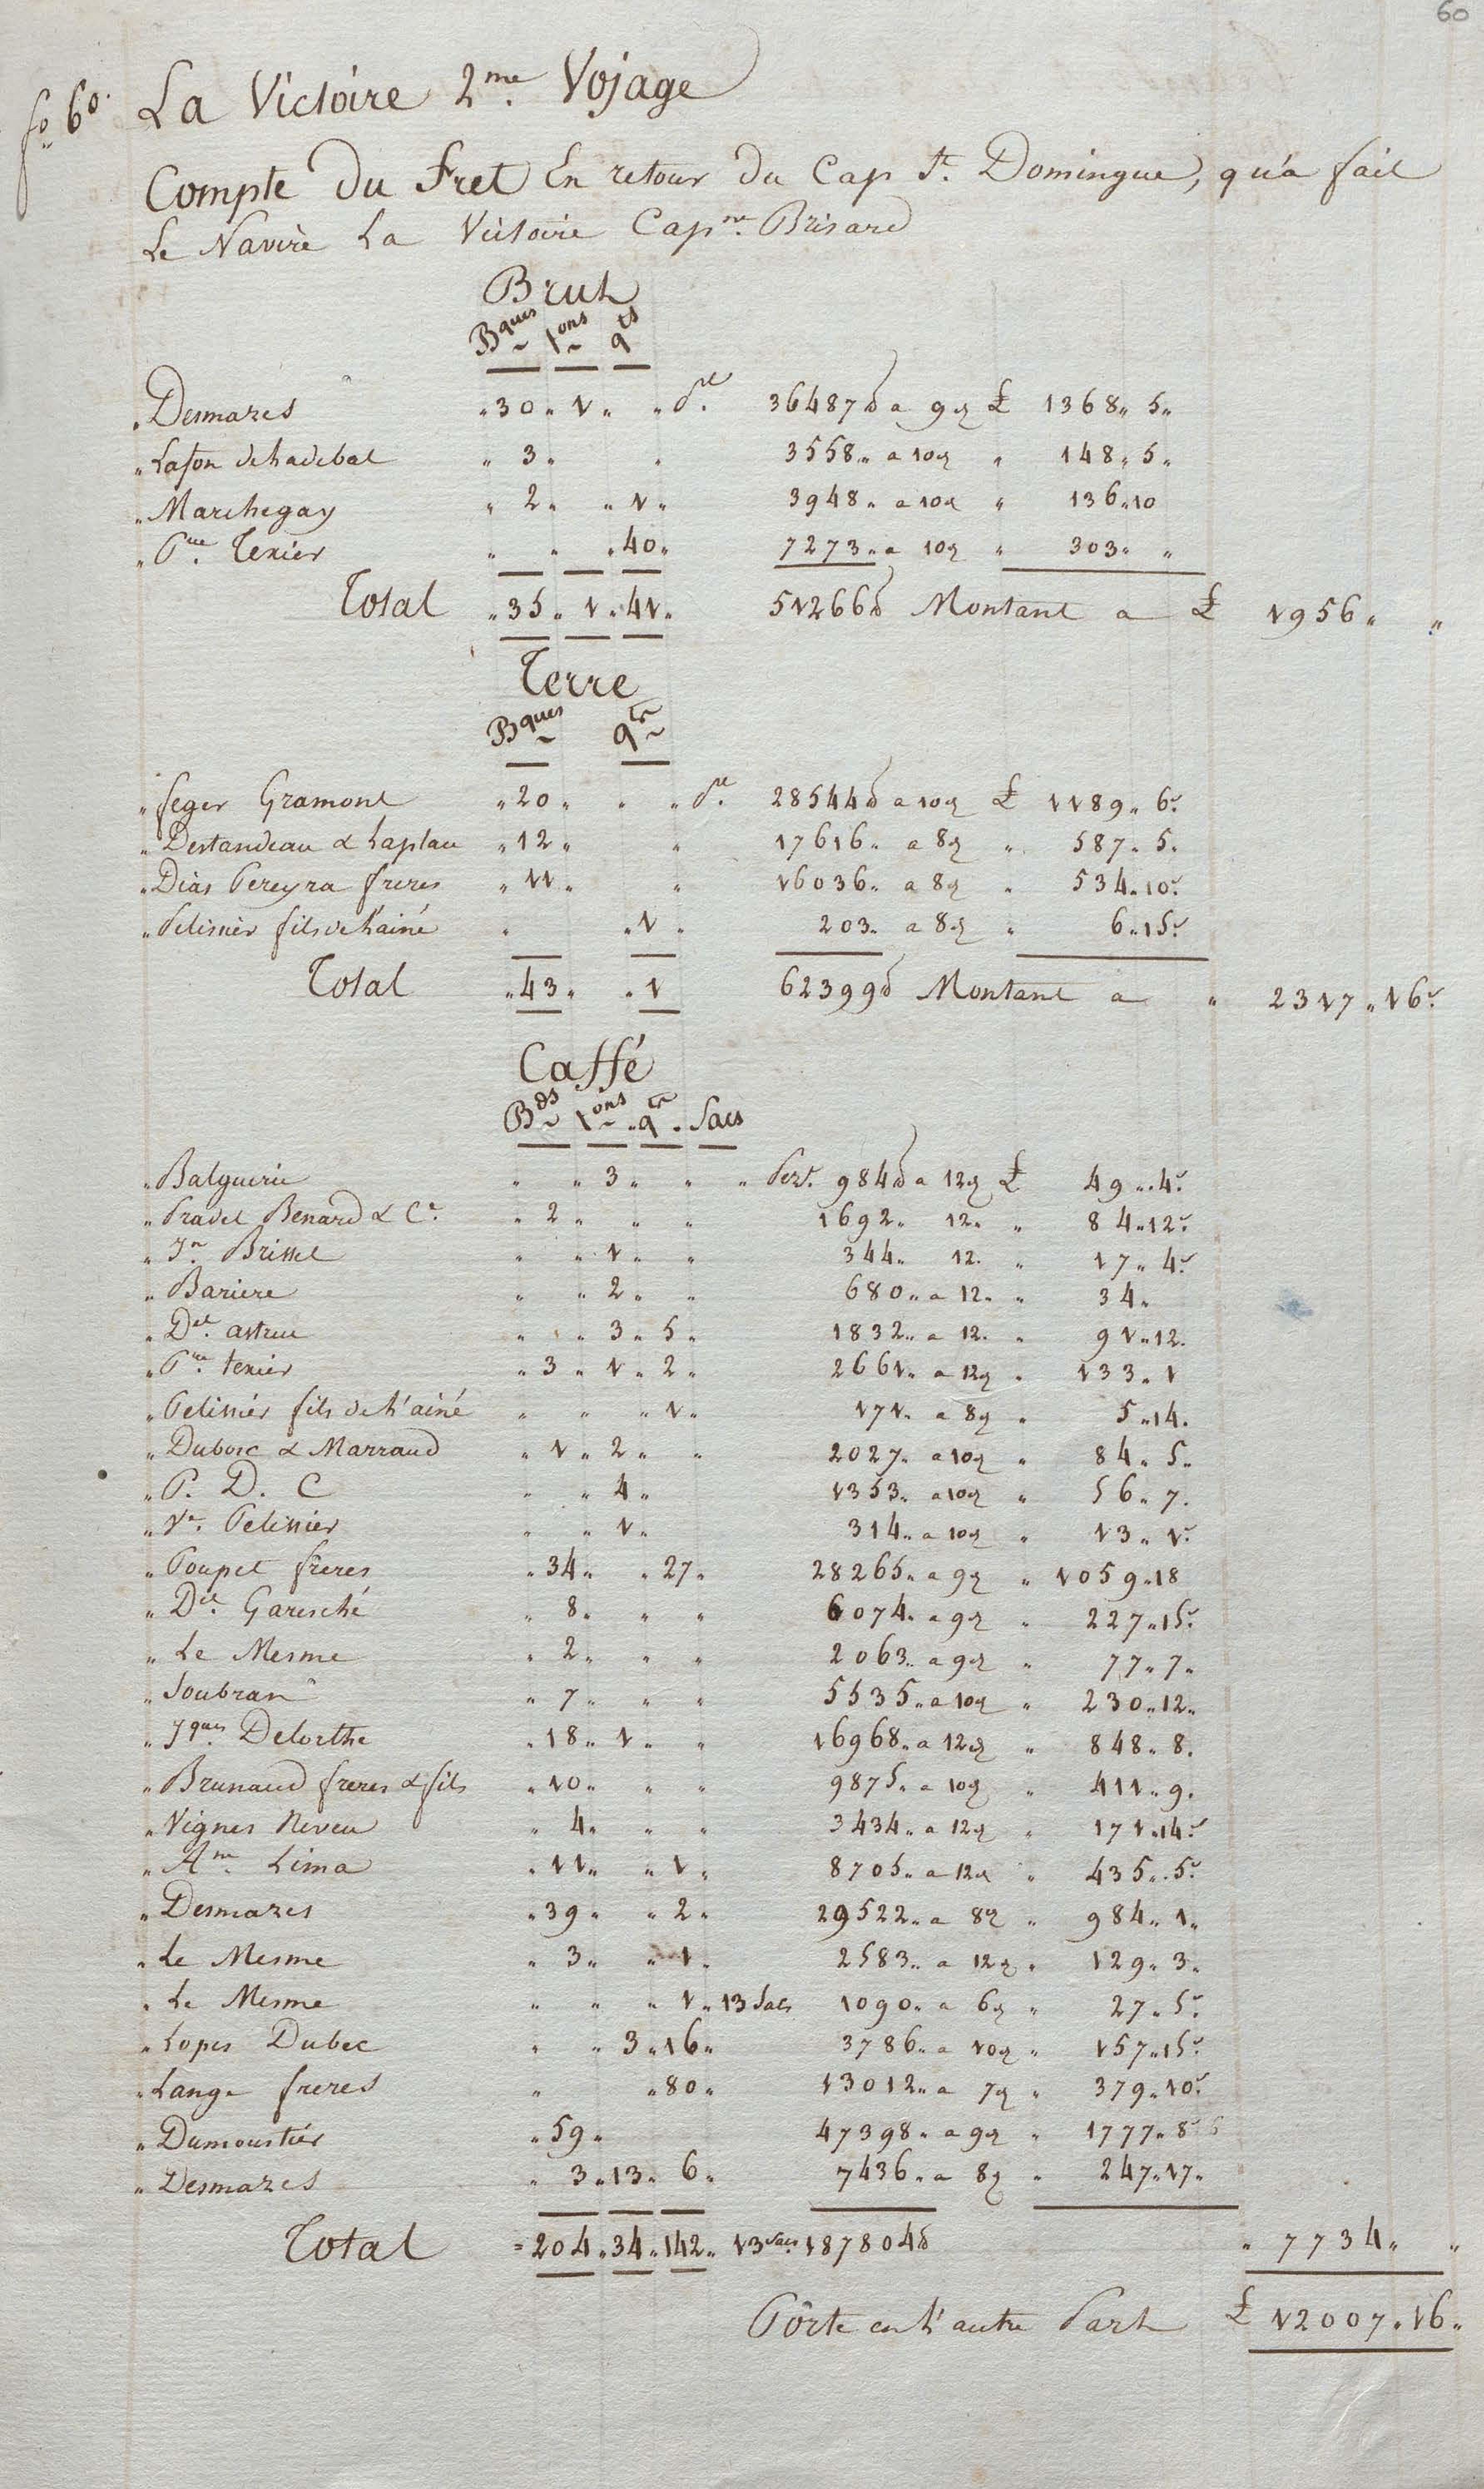 60
fo 60. La Victoire 2me. Vojage
Compte Du Fret En retour Du Cap St. Domingue, qu'a fait
Le Navire La Victoire Capne. Brisard
Brut
Bques tons qts
Desmazes 30 1 Pt. 36487 lb a 9d £ 1368 5
Lafon deLadebat 3 3558 a 10d 148 5
Marchegay 2 1 3948 a 10d 136 10
Pre. Texier 40 7273 a 10d 303
Total 35 1 41 51266 lb Montant a £ 1956
Terre
Bques qts
feger Gramont 20 Pt. 28544 lb a 10d £ 1189 6s
Destandeau & Laplau 12 17616 a 8d 587 5
Dias Pereyra freres 11 16036 a 8d 534 10s
Pelissier fils de L'ainé 1 203 a 8d 6 15s
Total 43 1 62399 lb Montant a 2317 16s
Caffé
Bds tons qts Sacs
Balguerie 3 Pezt. 984 lb a 12d £ 49 4s
Pradel Benard & Ce. 2 1692 12 84 12s
Jn. Brissel 1 344 12 17 4s
Bariere 2 680 a 12 34
Del. astruc 3 5 1832 a 12 91 12
Pre. texier 3 1 2 2661 a 12d 133 1
Pelissier fils de L'ainé 1 171 a 8d 5 14
Dubosc & Marraud 1 2 2027 a 10d 84 5
P. D. C 4 1353 a 10d 56 7
Ve. Pelissier 1 314 a 10d 13 1s
Poupet freres 34 27 28265 a 9d 1059 18
Del. Garesché 8 6074 a 9d 227 15s
Le Mesme 2 2063 a 9d 77 7
Soubran 7 5535 a 10d 230 12
Jques. Delorthe 18 1 16968 a 12d 848 8
Brunaud freres & fils 10 9875 a 10d 411 9
Vignes Neveu 4 3434 a 12d 171 14s
Ame. Lima 11 1 8705 a 12d 435 5s
Desmazes 39 2 29522 a 8d 984 1
Le Mesme 3 1 2583 a 12d 129 3
Le Mesme 1 13 Sacs 1090 a 6d 27 5s
Lopes Dubec 3 16 3786 a 10d 157 15s
Lange freres 80 13012 a 7d 379 10s
Dumoustier 59 47398 a 9d 1777 8s 6
Desmazes 3 13 6 7436 a 8d 247 17
Total 204 34 142 13 sacs 187804 lb 7734
Porte en L'autre Part £ 12007 16